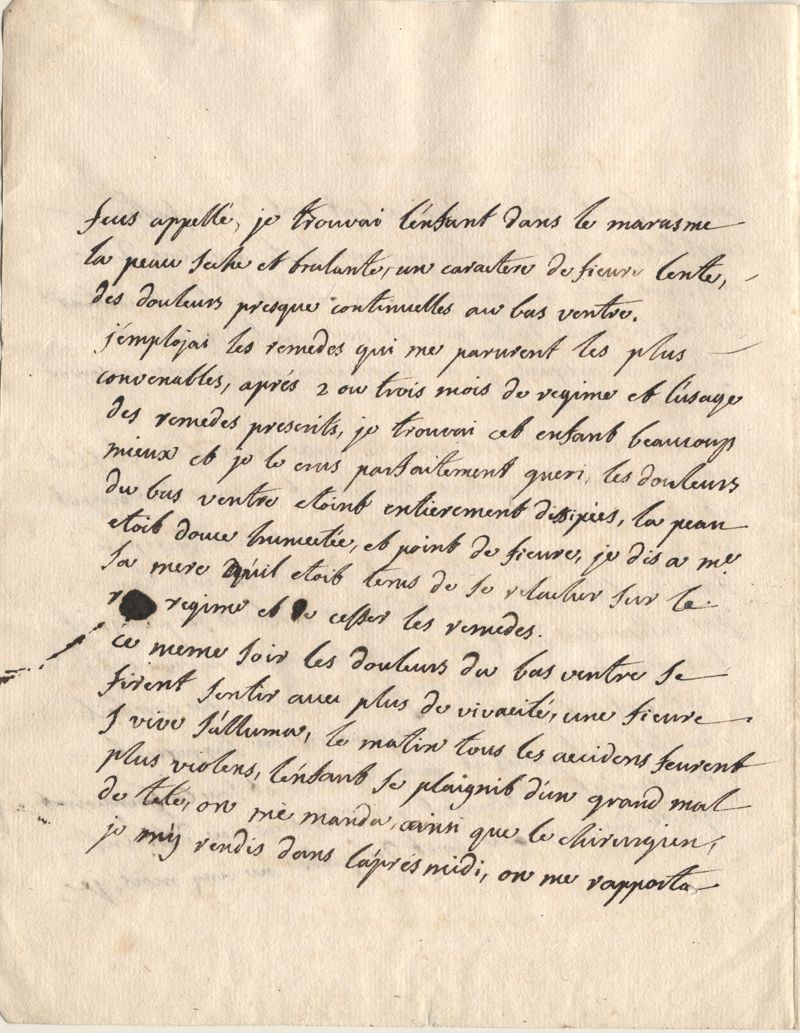 feus appellé, je trouvai l'énfant dans le marasme
la peau seche et brulante, un caractere de fieure lente,
des douleurs presque continuelles au bas ventre.
j'émplojai les remedes qui me parurent les plus
convenables, aprés 2 ou trois mois de regime et l'úsage
des remedes prescrits, je trouvai cet enfant beaucoup
mieux et je le crus parfaitement gueri, les douleurs
du bas ventre etoint entierement dissipées, la peau
etoit douce humectée, et point de fieure, je dis a me.
sa mere qu'il etoit tems de se relacher sur le
regime et de cesser les remedes.
ce meme soir les douleurs du bas ventre se
firent sentir avec plus de vivacité, une fieure
s vive s'álluma, le matin tous les accidens feurent
plus violens, l'énfant se plaignit d'un grand mal
de tete, on me manda, ainsi que le chirurgien,
je m'y rendis dans l'áprés midi, on me rapporta